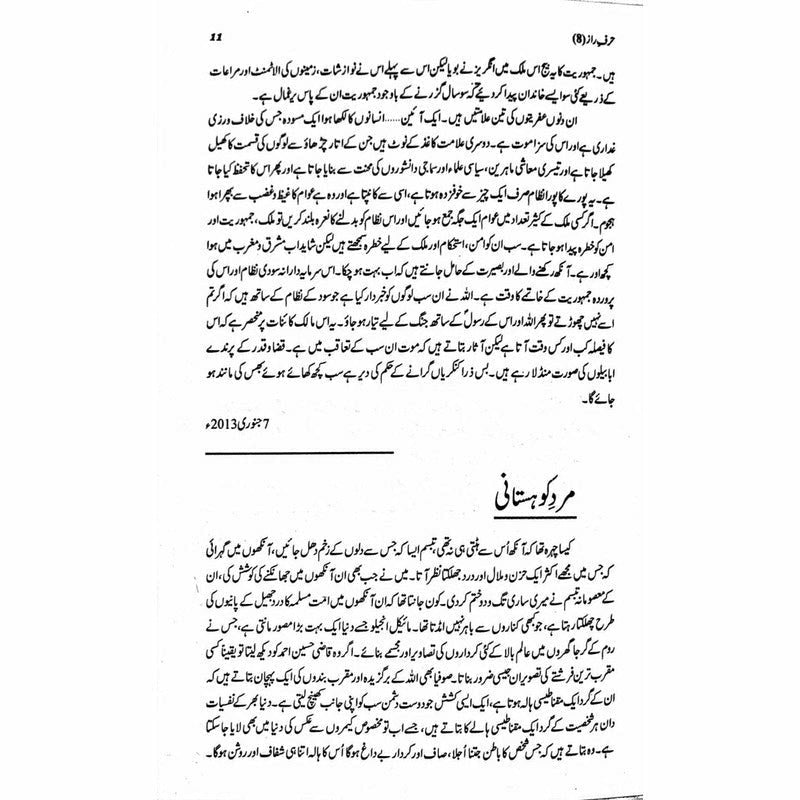 حرفِ راز (8) 11
ہیں۔ جمہوریت کا یہ بیج اس ملک میں انگریز نے بویا لیکن اس سے پہلے اس نے نوازشات، زمینوں کی الاٹمنٹ اور مراعات
کے ذریعے کئی سو ایسے خاندان پیدا کر دیئے کہ سو سال گزرنے کے باوجود جمہوریت ان کے پاس یرغمال ہے۔
ان دونوں عفریتوں کی تین علامتیں ہیں۔ ایک آئین...... انسانوں کا لکھا ہوا ایک مسودہ جس کی خلاف ورزی
غداری ہے اور اس کی سزا موت ہے۔ دوسری علامت کاغذ کے نوٹ ہیں جن کے اتار چڑھاؤ سے لوگوں کی قسمت کا کھیل
کھیلا جاتا ہے اور تیسری معاشی ماہرین، سیاسی علماء اور سماجی دانشوروں کی محنت سے بنایا جاتا ہے اور پھر اس کا تحفظ کیا جاتا
ہے۔ یہ پورے کا پورا نظام صرف ایک چیز سے خوفزدہ ہوتا ہے، اسی سے کانپتا ہے اور وہ ہے عوام کا غیظ و غضب سے بھرا ہوا
ہجوم۔ اگر کسی ملک کے کثیر تعداد میں عوام ایک جگہ جمع ہو جائیں اور اس نظام کو بدلنے کا نعرہ بلند کریں تو ملک، جمہوریت اور
امن کو خطرہ پیدا ہو جاتا ہے۔ سب ان کو امن، استحکام اور ملک کے لیے خطرہ سمجھتے ہیں لیکن شاید اب مشرق و مغرب میں ہوا
کچھ اور ہے۔ آنکھ رکھنے والے اور بصیرت کے حامل جانتے ہیں کہ اب بہت ہو چکا۔ اس سرمایہ دارانہ سودی نظام اور اس کی
پروردہ جمہوریت کے خاتمے کا وقت ہے۔ اللہ نے ان سب لوگوں کو خبردار کیا ہے جو سود کے نظام کے ساتھ ہیں کہ اگر تم
اسے نہیں چھوڑتے تو پھر اللہ اور اس کے رسولؐ کے ساتھ جنگ کے لیے تیار ہو جاؤ۔ یہ اس مالک کائنات پر منحصر ہے کہ اس
کا فیصلہ کب اور کس وقت آتا ہے لیکن آثار بتاتے ہیں کہ موت ان سب کے تعاقب میں ہے۔ قضا و قدر کے پرندے
ابابیلوں کی صورت منڈلا رہے ہیں۔ بس ذرا کنکریاں گرانے کے حکم کی دیر ہے سب کچھ کھائے ہوئے بھس کی مانند ہو
جائے گا۔
7 جنوری 2013ء
مردِ کوہستانی
کیسا چہرہ تھا کہ آنکھ اُس سے ہٹتی ہی نہ تھی، تبسم ایسا کہ جس سے دلوں کے زخم دھل جائیں، آنکھوں میں گہرائی
کہ جس میں مجھے اکثر ایک حزن و ملال اور درد جھلکتا نظر آتا۔ میں نے جب بھی ان آنکھوں میں جھانکنے کی کوشش کی، ان
کے معصومانہ تبسم نے میری ساری تگ و دو ختم کر دی۔ کون جانتا تھا کہ ان آنکھوں میں امت مسلمہ کا درد جھیل کے پانیوں کی
طرح چھلکتا رہتا ہے، جو کبھی کناروں سے باہر نہیں امڈتا تھا۔ مائیکل انجیلو جسے دنیا ایک بہت بڑا مصور مانتی ہے، جس نے
روم کے گرجا گھروں میں عالم بالا کے کئی کرداروں کی تصاویر اور مجسمے بنائے۔ اگر وہ قاضی حسین احمد کو دیکھ لیتا تو یقیناً کسی
مقرب ترین فرشتے کی تصویر ان جیسی ضرور بناتا۔ صوفیا بھی اللہ کے برگزیدہ اور مقرب بندوں کی ایک پہچان بتاتے ہیں کہ
ان کے گرد ایک مقناطیسی ہالہ ہوتا ہے، ایک ایسی کشش جو دوست دشمن سب کو اپنی جانب کھینچ لیتی ہے۔ دنیا بھر کے نفسیات
دان ہر شخصیت کے گرد ایک مقناطیسی ہالے کا بتاتے ہیں، جسے اب تو مخصوص کیمروں سے عکس کی دنیا میں بھی لایا جا سکتا
ہے۔ وہ بتاتے ہیں کہ جس شخص کا باطن جتنا اُجلا، صاف اور کردار بے داغ ہوگا اُس کا ہالہ اتنا ہی شفاف اور روشن ہوگا۔